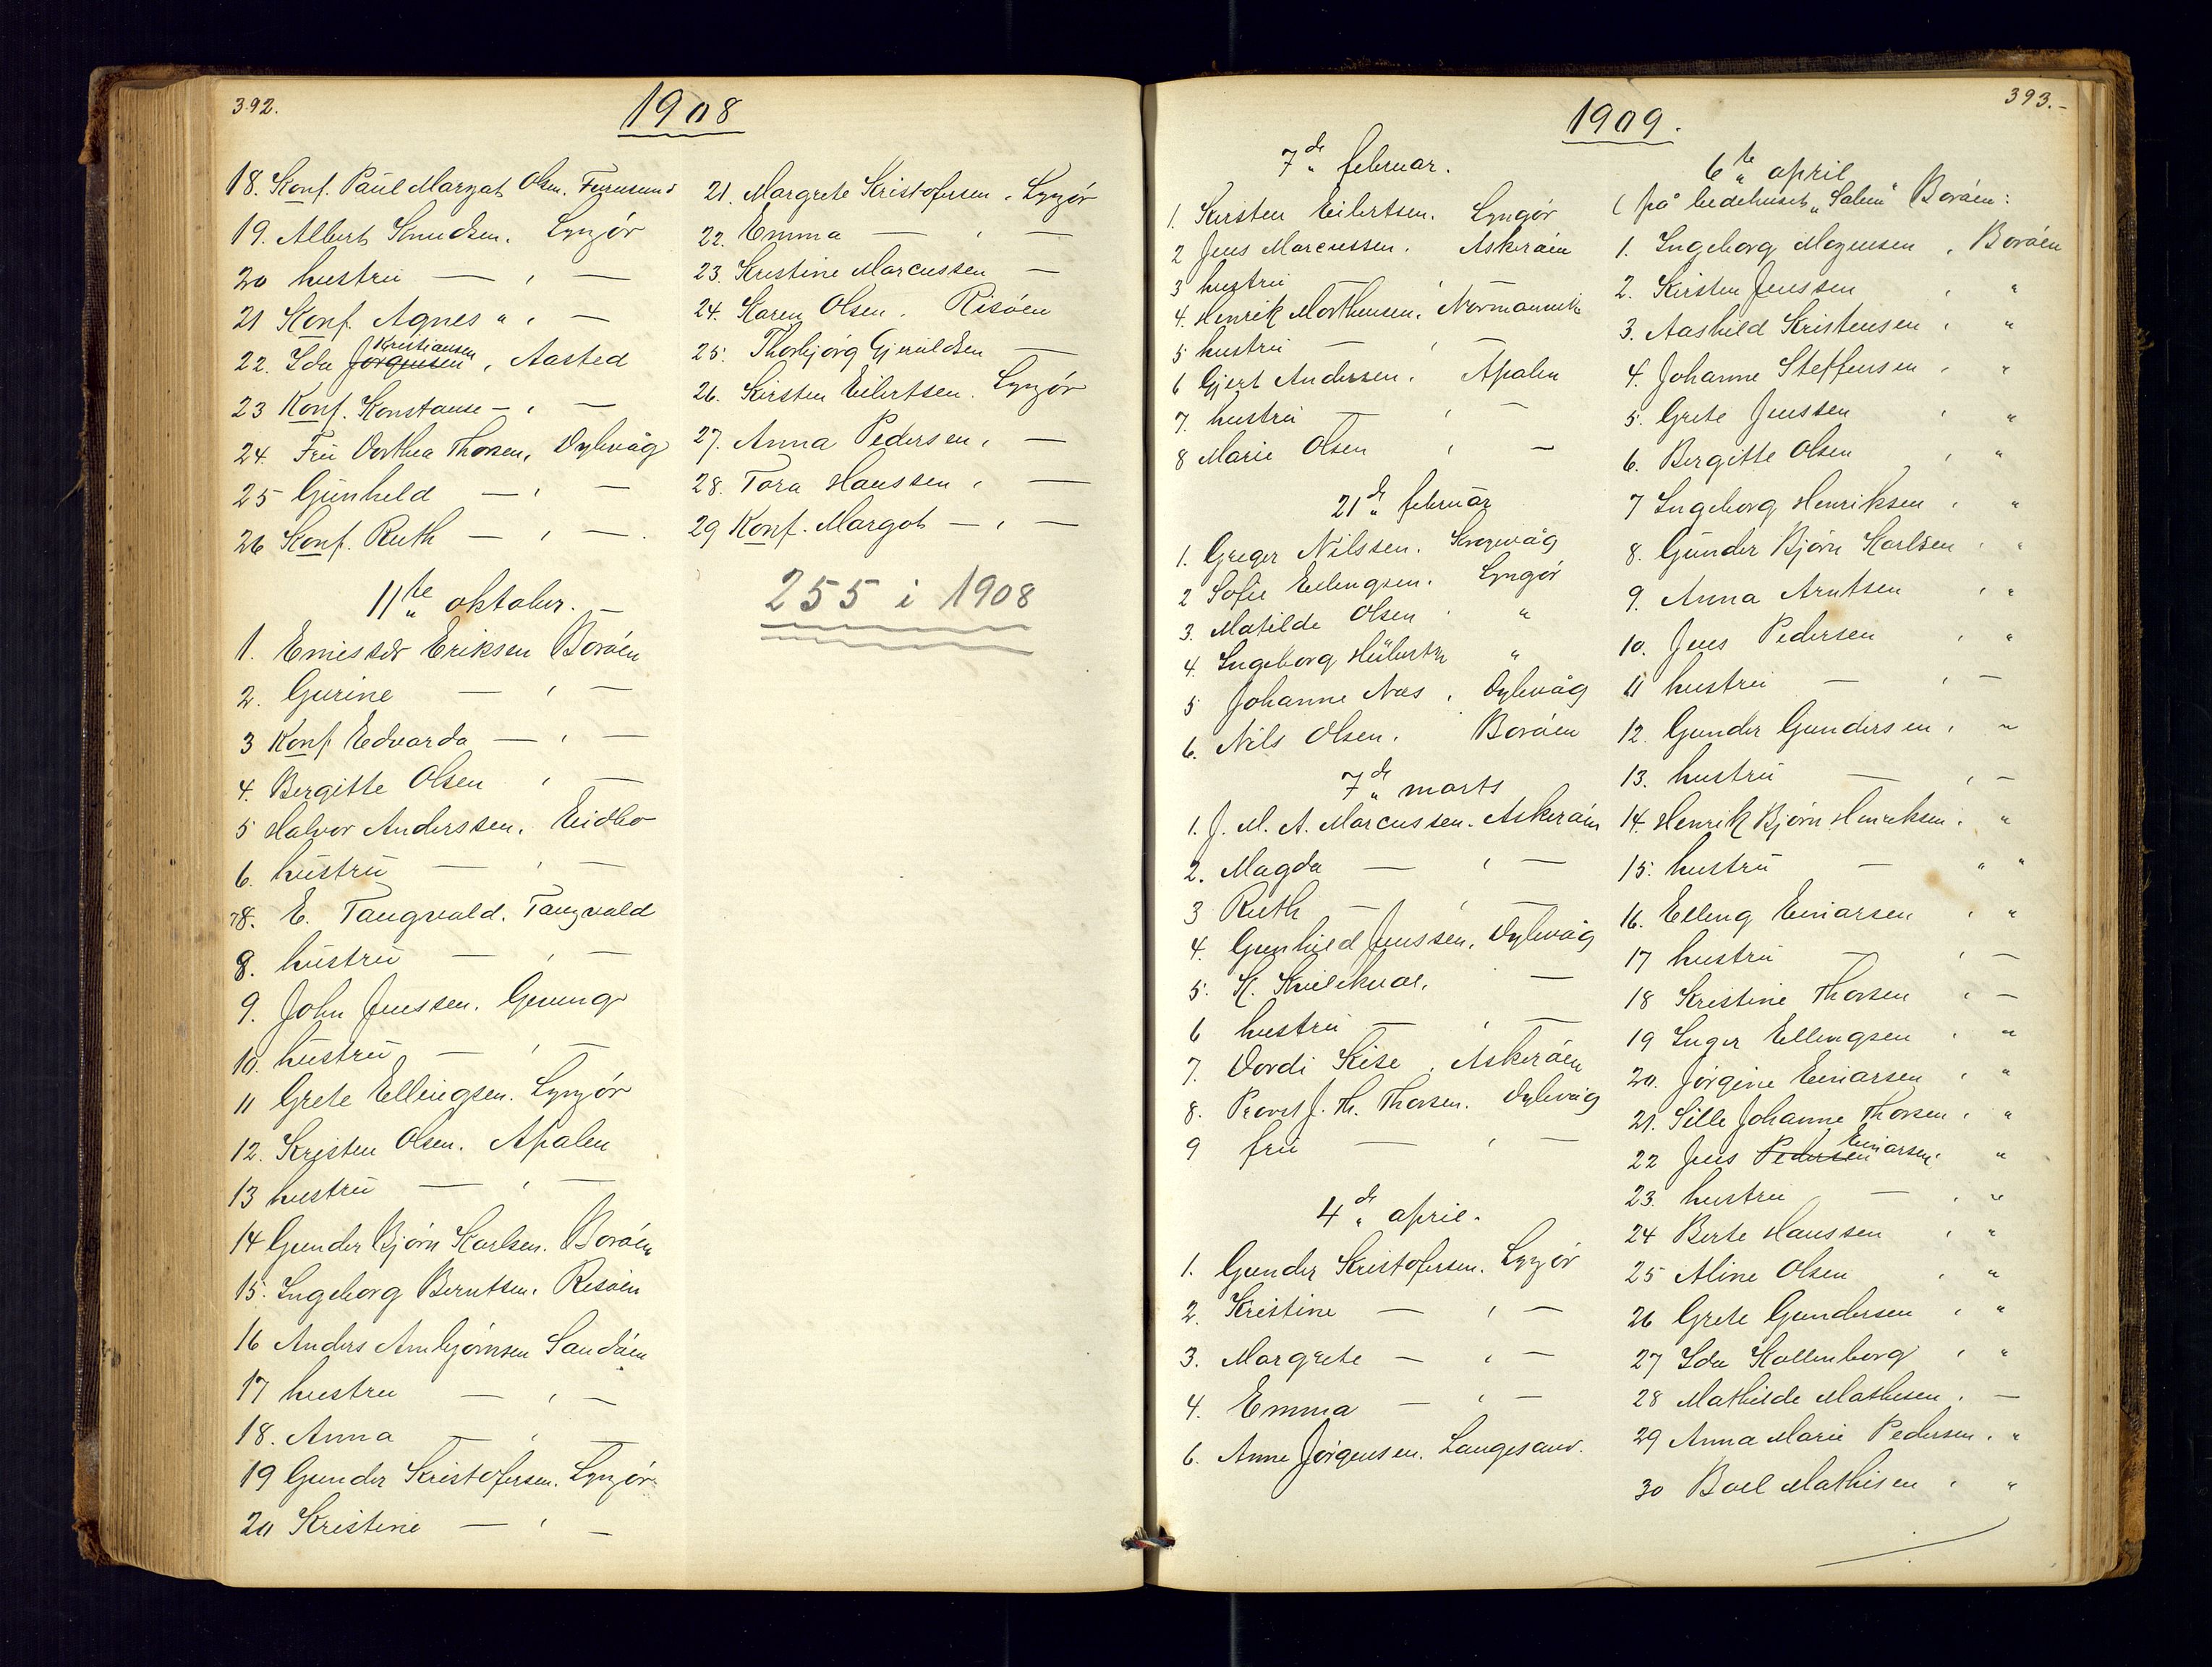 392.
1908
18. Konf. Paul Margat Olsen. Furusund
19. Albert Knudsen. Lyngör
20 hustru — , —
21 Konf. Agnes " , —
22. Ida Jörgensen Kristiansen, Aasted
23 Konf. Konstanse — , —
24. Fru Dorthea Thorsen, Dybvåg
25 Gunhild — , —
26 Konf. Ruth — , —.
11te oktober. —
1. Eriksen Boröen
2. Gurine — , —
3 Konf Edvarda — , —
4. Bergitte Olsen , —
5 Halvor Anderssen, Eidbo
6. hustru — , —
78. E. Tangvald. Tangvald
8. hustru — , —
9. John Jenssen. Gjeving
10. hustru — , —
11 Grete Ellingsen. Lyngör
12. Kristen Olsen. Apalen
13 hustru — , —
14 Gunder Björn Karlsen. Boröen
15. Ingeborg Berntsen. Risöen
16 Anders Arnbjörnsen Sandöen
17 hustru — , —
18. Anna — , —
19 Gunder Kristofersen. Lyngör
20 Kristine — , —
21. Margrete Kristofersen, Lyngör
22. Emma — , —
23. Kristine Marcussen —
24. Karen Olsen. Risöen
25. Thorbjörg Gjeruldsen —
26. Kirsten Eilertsen. Lyngör
27. Anna Pedersen, —
28. Tora Hanssen , —
29 Konf. Margot — , —
255 i 1908
393.-
1909.
7de februar.
1. Kirsten Eilertsen. Lyngör
2 Jens Marcussen. Askeröen
3 hustru — , —
4. Henrik Morthensen, Normannvik
5 hustru — , —
6 Gjert Andersen. Apalen
7. hustru — , —
8 Marie Olsen , —
21de februar
1. Greger Nilssen. Krogvåg
2 Sofie Ellingsen. Lyngör
3. Matilde Olsen . "
4. Ingeborg "
5 Johanne Næs , Dybvåg
6. Nils Olsen. Boröen
7de marts
1. J. M. A. Marcussen. Askeröen
2. Magda — , —
3 Ruth — , —
4. Gunhild Jenssen, Dybvåg
5. K. —
6 hustru — , —
7. Dordi Kise . Askeröen
8. Provst J. Th. Thorsen. Dybvåg
9 fru — , —
4de april.
1. Gunder Kristofersen. Lyngör
2. Kristine — , —
3. Margrete — , —
4. Emma — , —
6. Anne Jörgensen. Langesand.
6te april
(på bedehuset "Salem" Boröen:
1. Ingeborg Mogensen , Boröen
2. Kirsten Jenssen , "
3. Aashild Kristensen , "
4. Johanne Steffensen , "
5. Grete Jenssen , "
6. Bergitte Olsen , "
7 Ingeborg Henriksen , "
8. Gunder Björn Karlsen , "
9. Anna Arntsen , "
10. Jens Pedersen , "
11 hustru — , —
12. Gunder Gundersen , "
13. hustru — , —
14. Henrik Björn Henriksen , "
15. hustru — " "
16. Elling Einarsen , "
17 hustru — , —
18 Kristine Thorsen , —
19 Inger Ellingsen , "
20. Jörgine Einarsen , "
21. Sille Johanne Thorsen , "
22 Jens Pedersen Einarsen. "
23. hustru — , "
24 Berte Hanssen , "
25 Aline Olsen , "
26 Grete Gundersen , "
27 Ida Kallenberg , "
28 Mathilde Mathisen , —
29 Anna Marie Pedersen , "
30 Boel Mathisen , "